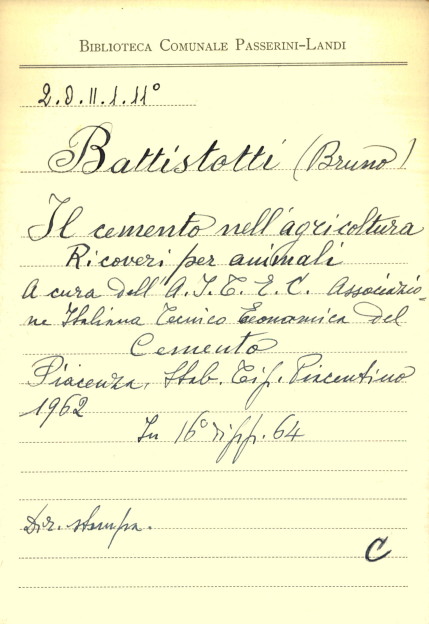 BIBLIOTECA COMUNALE PASSERINI-LANDI
2.O.II.1.11°
Battistotti (Bruno)
Il cemento nell'agricoltura
Ricoveri per animali
A cura dell'A.I.T.E.C. Associazio-
ne Italiana Tecnico Economica del
Cemento
Piacenza, Stab. Tip. Piacentino
1962
In 16° di pp. 64
Dir. stampa.
C